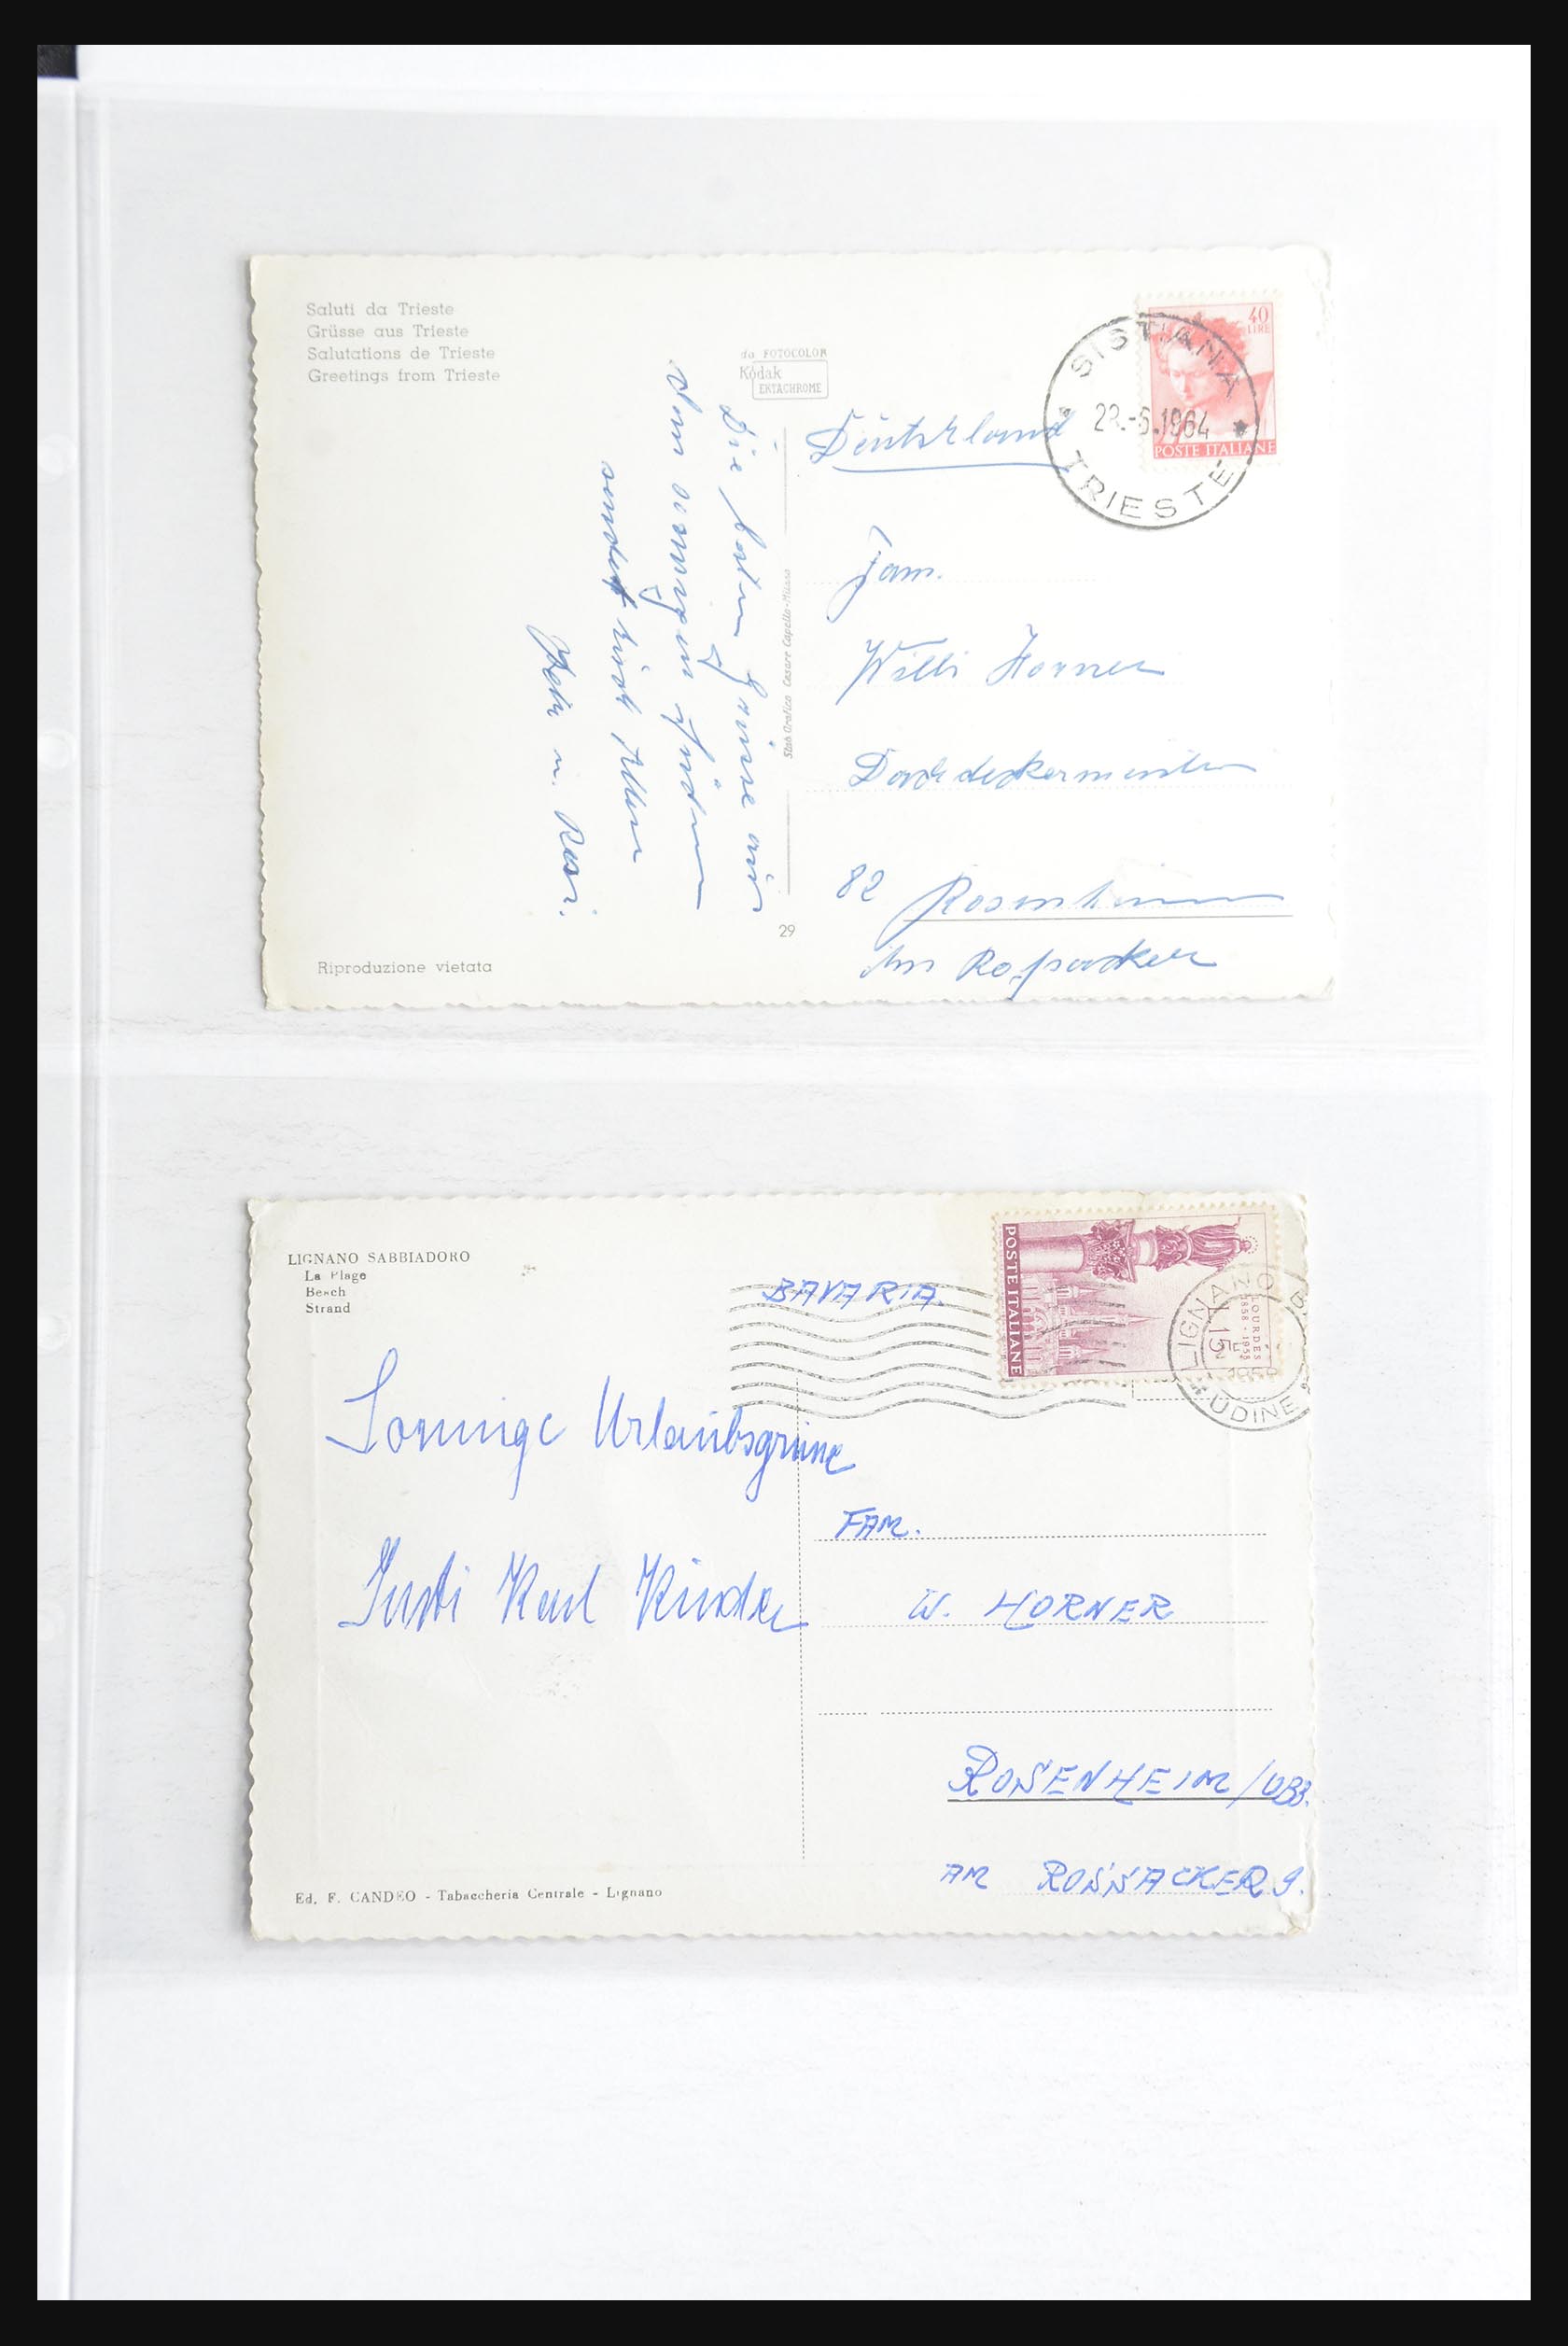 Saluti da Trieste
Grüsse aus Trieste
Salutations de Trieste
Greetings from Trieste
da FOTOCOLOR
Kodak
EKTACHROME
40
LIRE
POSTE ITALIANE
SISTIANA
-6.1964
TRIESTE
Die besten Grüsse aus
dem sonnigen Süden
sendet Euch Allen
u. Rosi.
Stab Grafico Cesare Capello-Milano
Deutschland
Fam.
Willi Horner
Dachdeckermeister
82 Rosenheim
Am Roßacker
29
Riproduzione vietata
LIGNANO SABBIADORO
La Plage
Beach
Strand
BAVARIA.
POSTE ITALIANE
LOURDES
1858 - 1958
LIGNANO
15
UDINE
Sonnige Urlaubsgrüsse
Gusti Karl Kinder
FAM.
W. HORNER
ROSENHEIM/OBB.
AM ROSSACKER 9.
Ed. F. CANDEO - Tabaccheria Centrale - Lignano